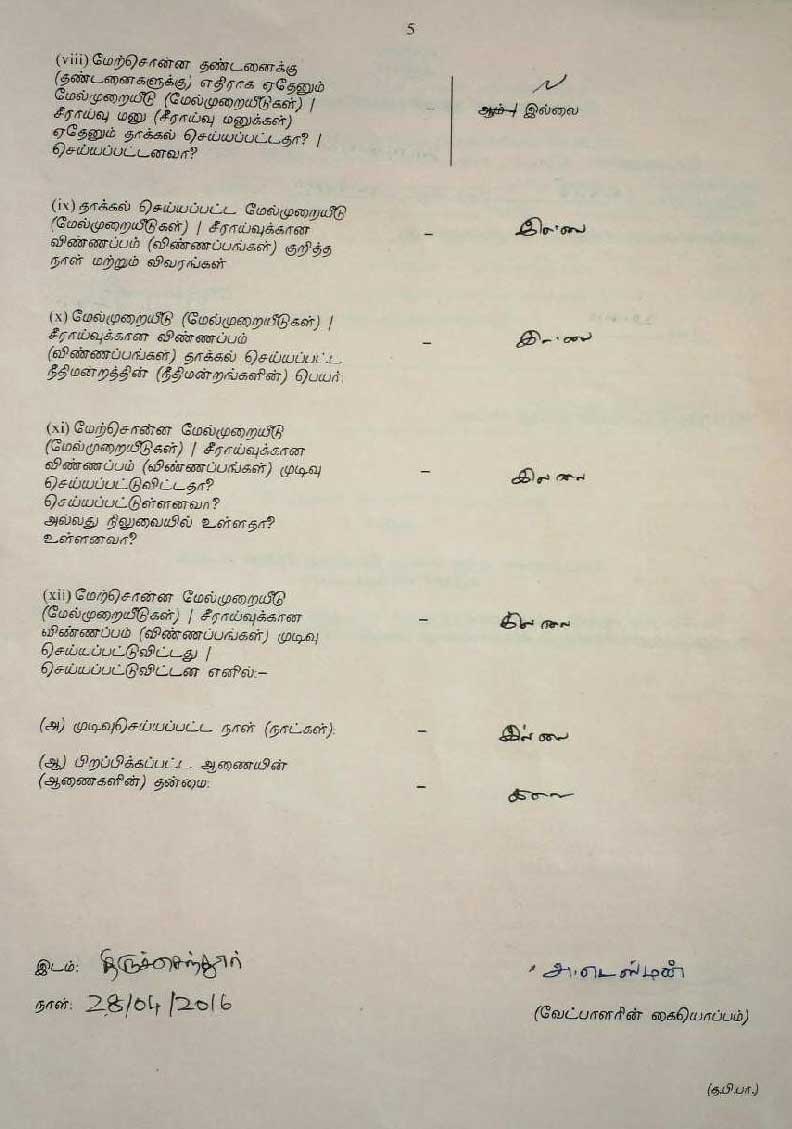 5
(viii) மேற்சொன்ன தண்டனைக்கு
(தண்டனைகளுக்கு) எதிராக ஏதேனும்
மேல்முறையீடு (மேல்முறையீடுகள்) |
சீராய்வு மனு (சீராய்வு மனுக்கள்)
ஏதேனும் தாக்கல் செய்யப்பட்டதா? |
செய்யப்பட்டனவா?
– ஆம் | இல்லை
(ix) தாக்கல் செய்யப்பட்ட மேல்முறையீடு
(மேல்முறையீடுகள்) | சீராய்வுக்கான
விண்ணப்பம் (விண்ணப்பங்கள்) குறித்த
நாள் மற்றும் விவரங்கள்
– இல்லை
(x) மேல்முறையீடு (மேல்முறையீடுகள்) |
சீராய்வுக்கான விண்ணப்பம்
(விண்ணப்பங்கள்) தாக்கல் செய்யப்பட்ட
நீதிமன்றத்தின் (நீதிமன்றங்களின்) பெயர்:
– இல்லை
(xi) மேற்சொன்ன மேல்முறையீடு
(மேல்முறையீடுகள்) | சீராய்வுக்கான
விண்ணப்பம் (விண்ணப்பங்கள்) முடிவு
செய்யப்பட்டுவிட்டதா?
செய்யப்பட்டுள்ளனவா?
அல்லது நிலுவையில் உள்ளதா?
உள்ளனவா?
– இல்லை
(xii) மேற்சொன்ன மேல்முறையீடு
(மேல்முறையீடுகள்) | சீராய்வுக்கான
விண்ணப்பம் (விண்ணப்பங்கள்) முடிவு
செய்யப்பட்டுவிட்டது |
செய்யப்பட்டுவிட்டன எனில்:–
– இல்லை
(அ) முடிவுசெய்யப்பட்ட நாள் (நாட்கள்): – இல்லை
(ஆ) பிறப்பிக்கப்பட்ட ஆணையின்
(ஆணைகளின்) தன்மை: – இல்லை
இடம்: திருச்செந்தூர்
நாள்: 28/04/2016
(வேட்பாளரின் கையொப்பம்)
(த.பி.பா.)